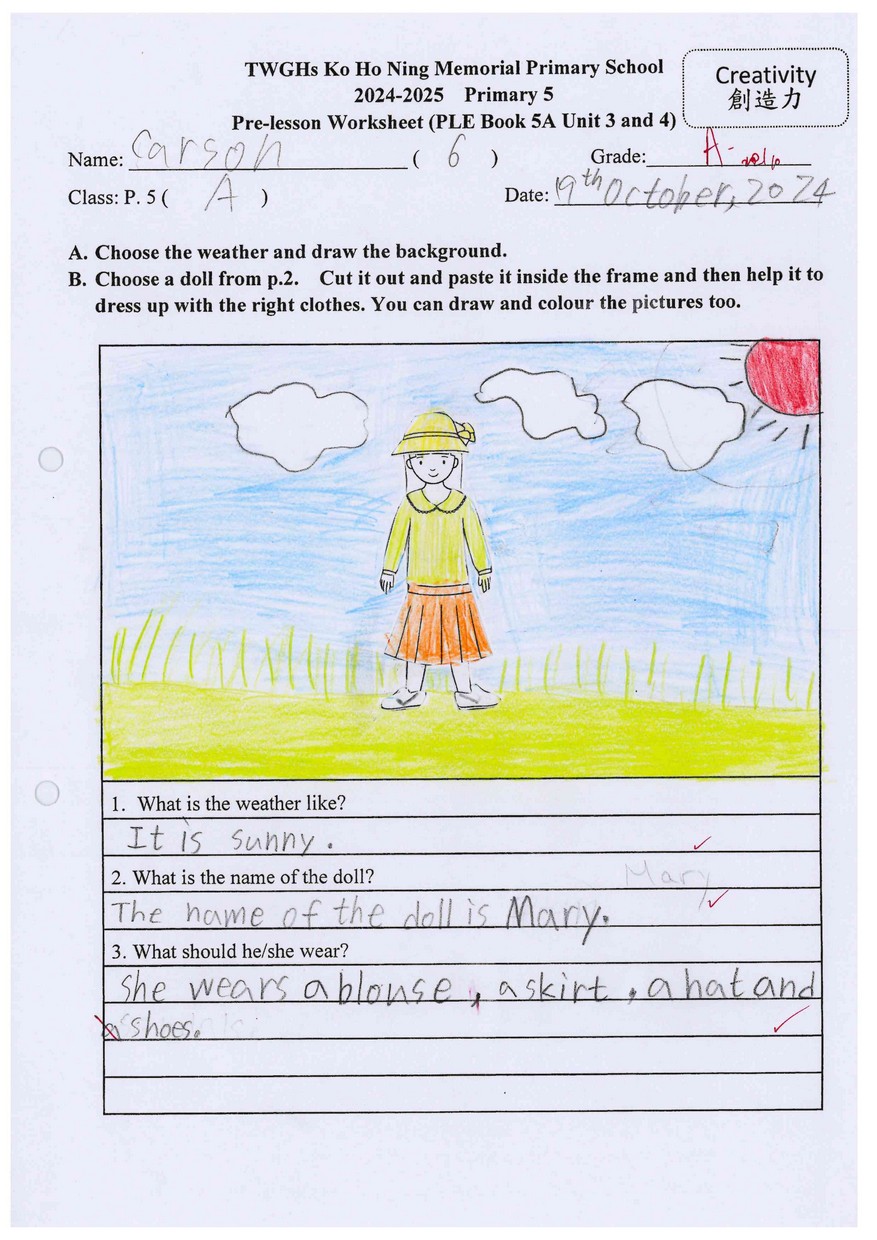 TWGHs Ko Ho Ning Memorial Primary School
2024-2025 Primary 5
Pre-lesson Worksheet (PLE Book 5A Unit 3 and 4)
Creativity
創造力
Name: Carson ( 6 ) Grade: A-
Class: P. 5 ( A ) Date: 19th October, 2024
A. Choose the weather and draw the background.
B. Choose a doll from p.2. Cut it out and paste it inside the frame and then help it to
dress up with the right clothes. You can draw and colour the pictures too.
1. What is the weather like?
It is sunny.
2. What is the name of the doll?
Mary
The name of the doll is Mary.
3. What should he/she wear?
She wears a blouse, a skirt, a hat and
a shoes.